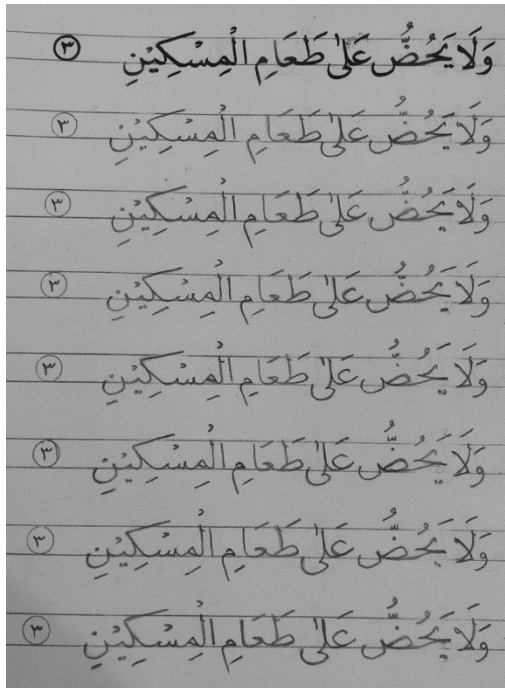 وَلَا يَحُضُّ عَلٰى طَعَامِ الْمِسْكِيْنِ ٣
وَلَا يَحُضُّ عَلٰى طَعَامِ الْمِسْكِيْنِ ٣
وَلَا يَحُضُّ عَلٰى طَعَامِ الْمِسْكِيْنِ ٣
وَلَا يَحُضُّ عَلٰى طَعَامِ الْمِسْكِيْنِ ٣
وَلَا يَحُضُّ عَلٰى طَعَامِ الْمِسْكِيْنِ ٣
وَلَا يَحُضُّ عَلٰى طَعَامِ الْمِسْكِيْنِ ٣
وَلَا يَحُضُّ عَلٰى طَعَامِ الْمِسْكِيْنِ ٣
وَلَا يَحُضُّ عَلٰى طَعَامِ الْمِسْكِيْنِ ٣